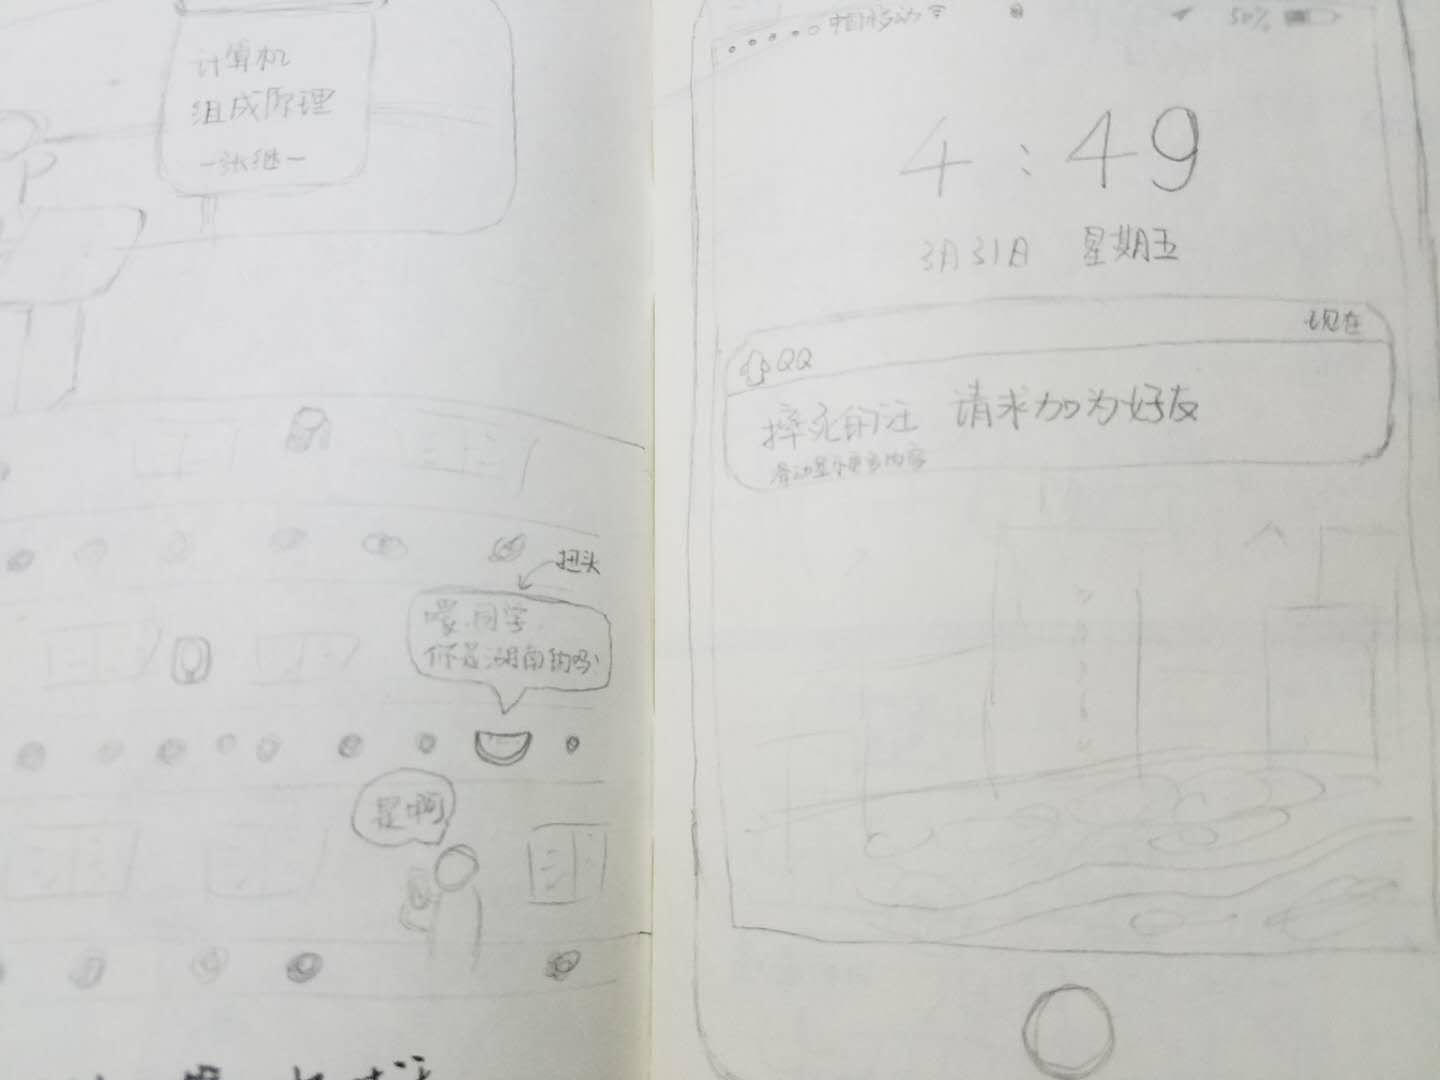 计算机
组成原理
—张继—
扭头
嘿,同学,
你是湖南的吗
是啊
中国移动
50%
4:49
3月31日 星期五
现在
QQ
摔死的汪 请求加为好友
滑动显示更多内容